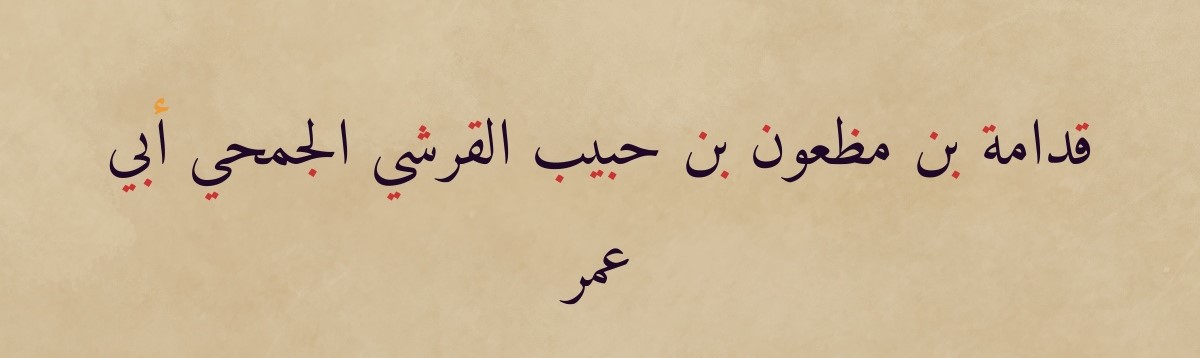 قدامة بن مظعون بن حبيب القرشي الجمحي أبي
عمر